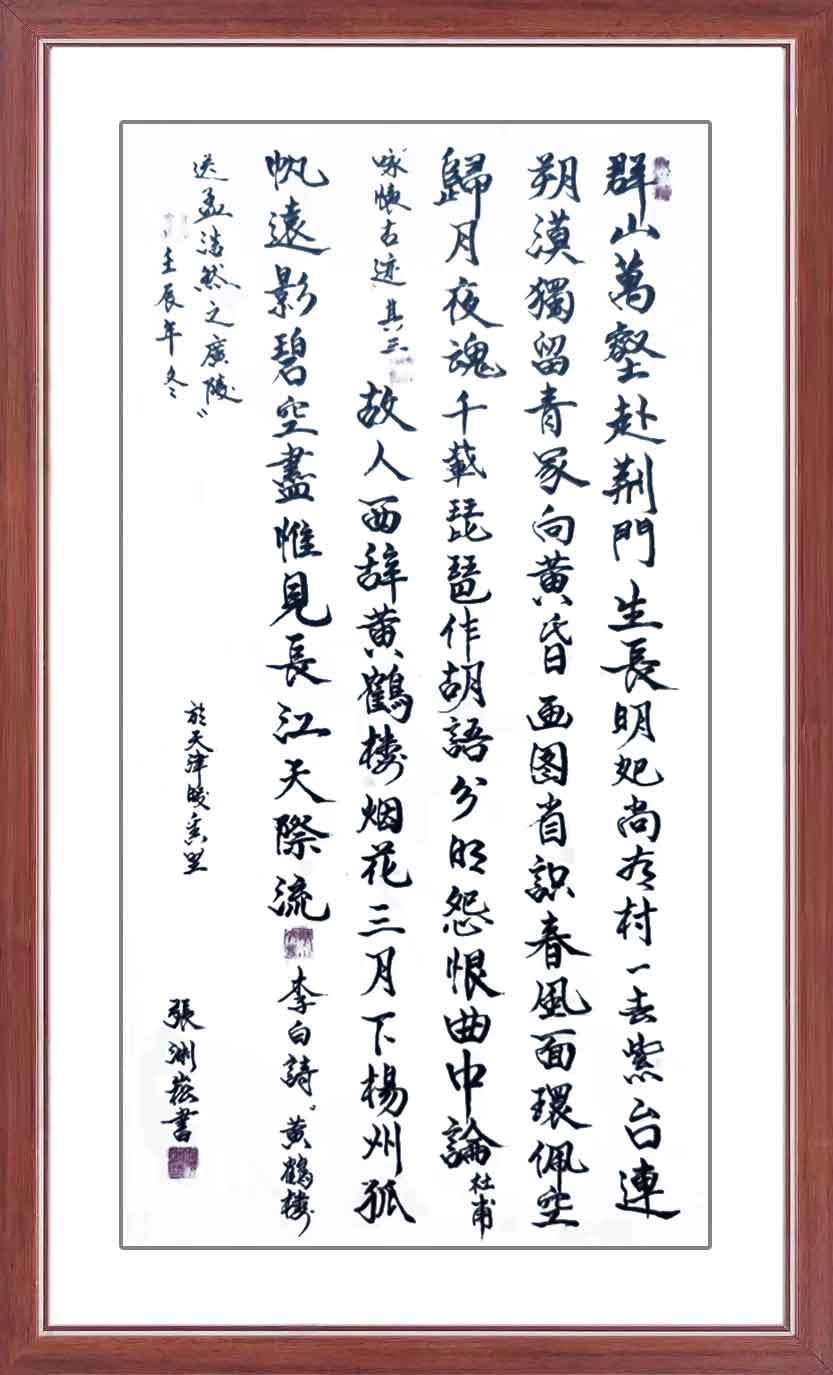 群山萬壑赴荆門生長明妃尚有村一去紫台連
朔漠獨留青冢向黄昏画图省識春風面環佩空
歸月夜魂千載琵琶作胡語分明怨恨曲中論杜甫
咏懷古迹其三 故人西辞黄鶴樓烟花三月下楊州孤
帆遠影碧空盡惟見長江天際流 李白詩"黄鶴樓
送孟浩然之廣陵"
壬辰年冬 於天津 張渊崧書